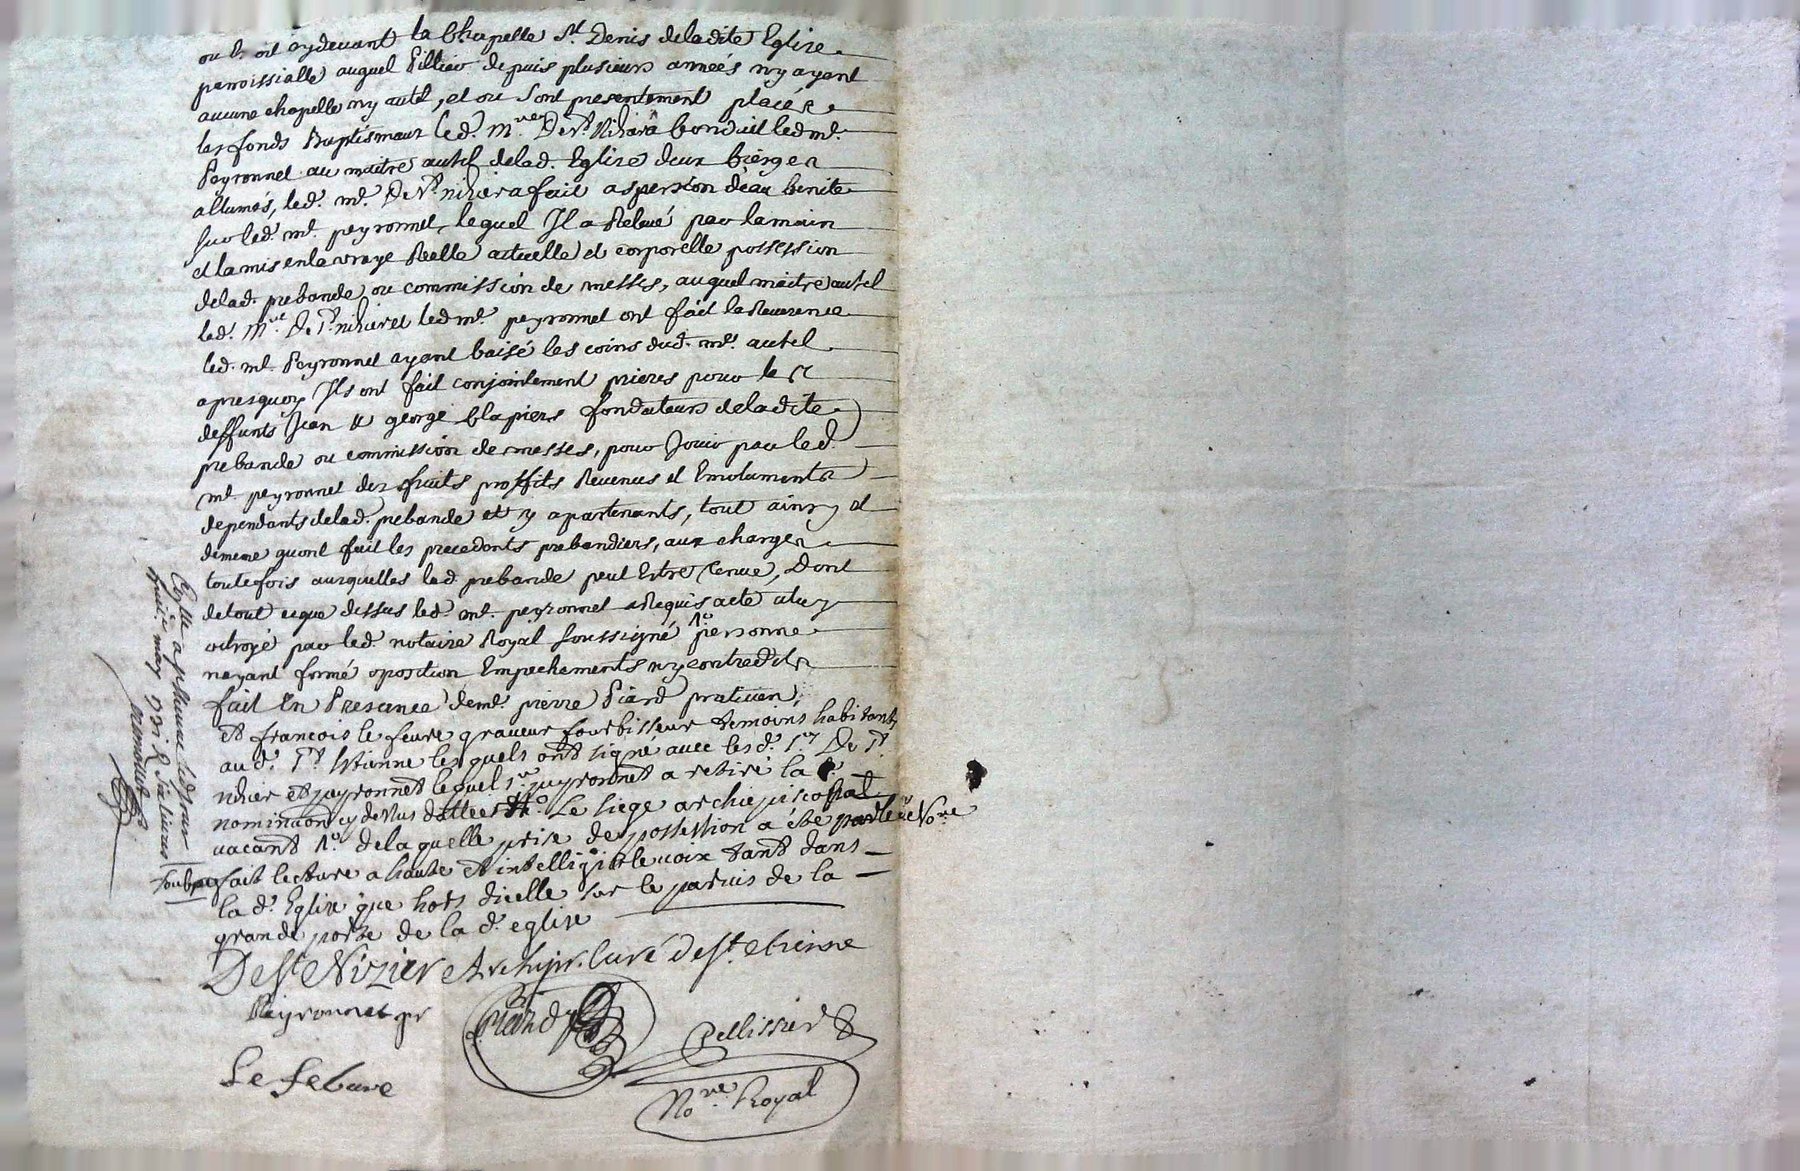 ou Est cydevant la Chapelle St. Denis deladite Eglise
parroissialle auquel Pillier depuis plusieurs années ny ayant
aucune chapelle ny autel, et ou Sont presentement placés
les fonds Baptismaux led. mre De St. Nizier a Conduit led mr.
Peyronnet au maitre autel delad. Eglise deux Cierges
allumés, led. mr. De St. nizier a fait aspersion d'eau benite
sur led. mr. peyronnet, lequel Il a Relevé par la main
et la mis en la vraye Reelle actuelle et corporelle possession
delad. prebande ou commission de messes, auquel maitre autel
led. mre De St. nizier et led mr. peyronnet ont fait la Reverence
led. mr. Peyronnet ayant baisé les coins dud. mre. autel
apresquoy Ils ont fait conjointement prieres pour les
deffunts Jean & george Clapiers fondateurs deladite
prebande ou commission de messes, pour Jouir par led.
mr. peyronnet des fruits proffits Revenus et Emoluments
dependants delad. prebande et y apartenants, tout ainsy et
dememe quont fait les precedents prebandiers, aux charges
toutefois auxquelles lad. prebande peut Estre tenue, Dont
detout ceque dessus led. mr. peyronnet a Requis acte a luy
octroyé par led. notaire Royal soussigné personne
nayant formé oposition Empechements ny contredits
fait En Presence de mr. pierre Piard praticien
et francois le feure graveur fourbisseur temoins habitants
aud. St. Etienne lesquels ont signe avec lesd. srs De St.
nizier et peyronnet lequel sr. peyronnet a retiré la
nomination cy dessus dattee Le siege archiepiscopal
vacant de laquelle prise de possession a été par le no.re
fait lecture a haute et intelligible voix tant dans
la d. Eglise que hors dicelle sur le parvis de la
grande porte de la d. eglise
De St Nizier Archipr. Curé de st. etienne
Peyronnet pr
Piard
Pellissier
Le febure
No.re Royal